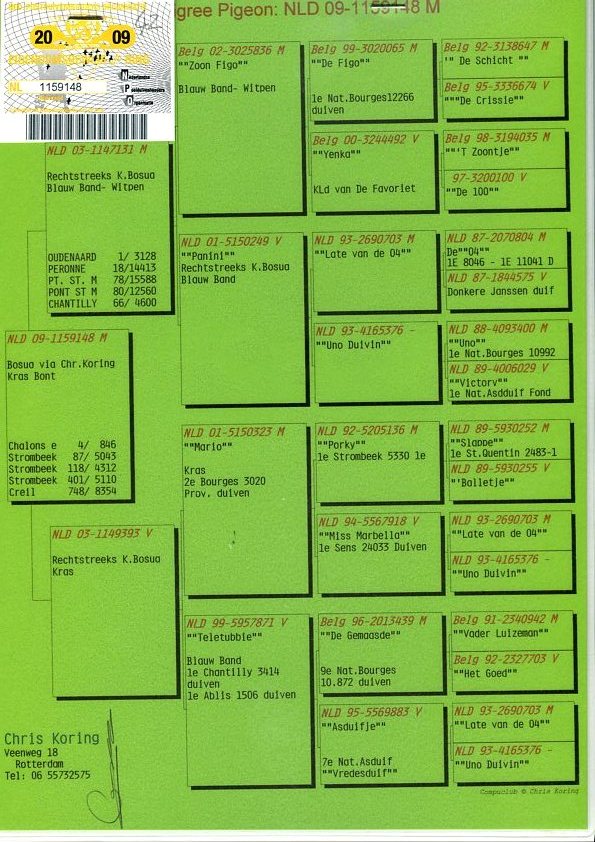 gree Pigeon: NLD 09-1159148 M
20 09
NL 1159148
Nederlandse
Postduivenhouders
Organisatie
NLD 03-1147131 M
Rechtstreeks K.Bosua
Blauw Band- Witpen
OUDENAARD 1/ 3128
PERONNE 18/14413
PT. ST. M 78/15588
PONT ST M 80/12560
CHANTILLY 66/ 4600
NLD 09-1159148 M
Bosua via Chr.Koring
Kras Bont
Chalons e 4/ 846
Strombeek 87/ 5043
Strombeek 118/ 4312
Strombeek 401/ 5110
Creil 748/ 8354
NLD 03-1149393 V
Rechtstreeks K.Bosua
Kras
Belg 02-3025836 M
""Zoon Figo""
Blauw Band- Witpen
NLD 01-5150249 V
""Panini""
Rechtstreeks K.Bosua
Blauw Band
NLD 01-5150323 M
""Mario""
Kras
2e Bourges 3020
Prov. duiven
NLD 99-5957871 V
""Teletubbie""
Blauw Band
1e Chantilly 3414
duiven
1e Ablis 1506 duiven
Belg 99-3020065 M
""De Figo""
1e Nat.Bourges12266
duiven
Belg 00-3244492 V
""Yenka""
KLd van De Favoriet
NLD 93-2690703 M
""Late van de 04""
NLD 93-4165376 -
""Uno Duivin""
NLD 92-5205136 M
""Porky""
1e Strombeek 5330 1e
NLD 94-5567918 V
""Miss Marbella""
1e Sens 24033 Duiven
Belg 96-2013439 M
""De Gemaasde""
9e Nat.Bourges
10.872 duiven
NLD 95-5569883 V
""Asduifje""
7e Nat.Asduif
""Vredesduif""
Belg 92-3138647 M
'" De Schicht ""
Belg 95-3336674 V
"""De Crissie"
Belg 98-3194035 M
""'T Zoontje""
97-3200100 V
""De 100""
NLD 87-2070804 M
De""04""
1E 8046 - 1E 11041 D
NLD 87-1844575 V
Donkere Janssen duif
NLD 88-4093400 M
""Uno""
1e Nat.Bourges 10992
NLD 89-4006029 V
""Victory""
1e Nat.Asdduif Fond
NLD 89-5930252 M
""Slappe""
1e St.Quentin 2483-1
NLD 89-5930255 V
"'Balletje""
NLD 93-2690703 M
""Late van de 04""
NLD 93-4165376 -
""Uno Duivin""
Belg 91-2340942 M
""Vader Luizeman""
Belg 92-2327703 V
""Het Goed""
NLD 93-2690703 M
""Late van de 04""
NLD 93-4165376 -
""Uno Duivin""
Chris Koring
Veenweg 18
Rotterdam
Tel: 06 55732575
Compuclub © Chris Koring